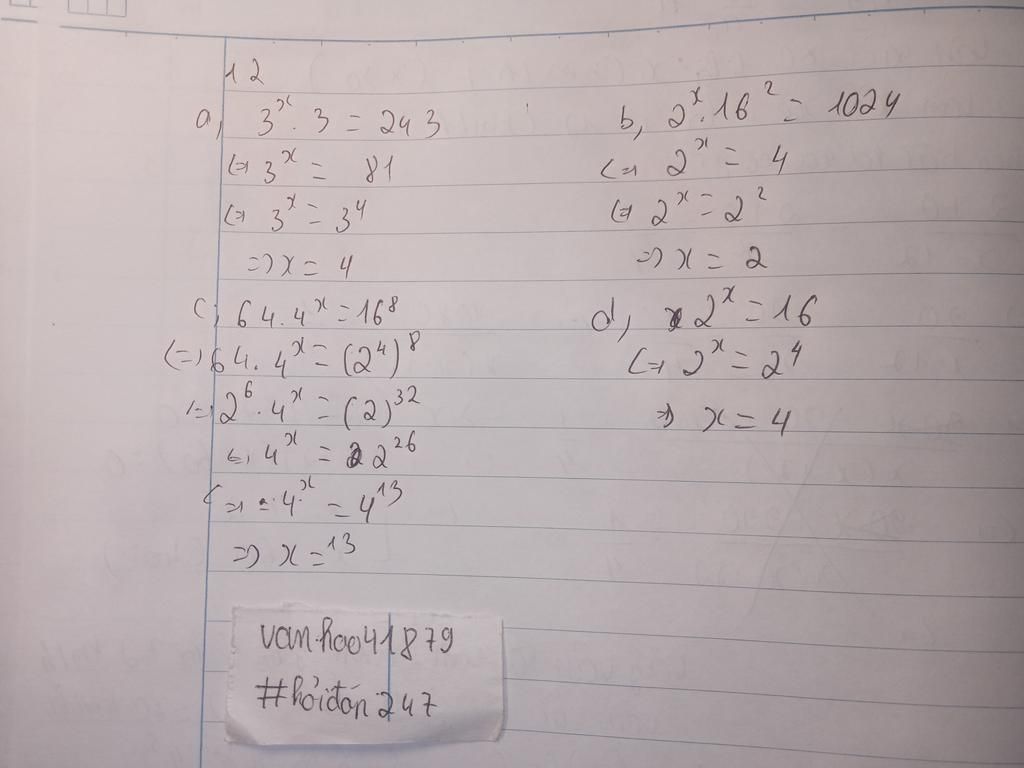 12
a, 3^x . 3 = 243
<=> 3^x = 81
<=> 3^x = 3^4
=> x = 4
b, 2^x . 16^2 = 1024
<=> 2^x = 4
<=> 2^x = 2^2
=> x = 2
c, 64 . 4^x = 16^8
<=> 64 . 4^x = (2^4)^8
<=> 2^6 . 4^x = (2)^32
<=> 4^x = 2^26
<=> 4^x = 4^13
=> x = 13
d, 2^x = 16
<=> 2^x = 2^4
=> x = 4
vanhao41879
#hỏiđáp247